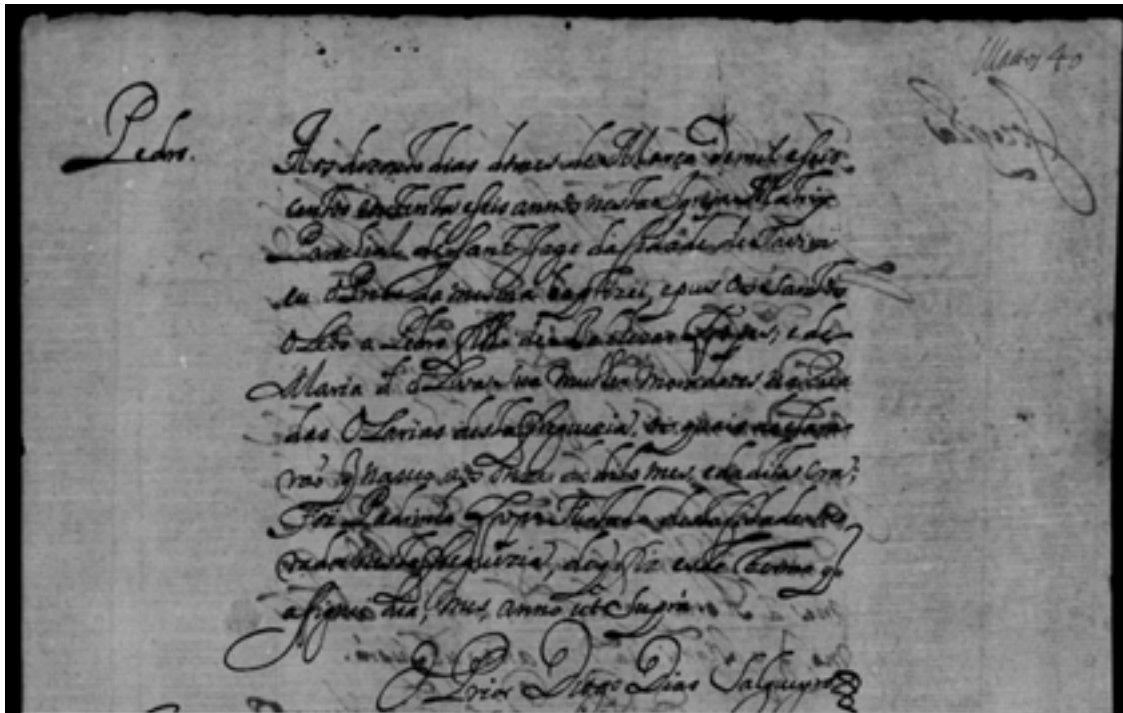 Mattos 40
Pedro.
Aos dezoito dias do mes de Março de mil e seis
centos e e seis annos nesta Igreja Matriz
Parochial de Sant Iago da Cidade de Tavira
eu o Prior da mesma baptizei, e pus os santos
oleos a Pedro filho de e de
Maria d' Oliveira sua mulher moradores na Rua
das Olarias desta freguezia, os quais declara
rão q̃ naceo aos onze do dito mes, e da dita era;
Foi Padrinho desta Cidade mo
rador nesta freguezia, de q̃ fiz este termo q̃
asignei dia, mes, anno ut supra
O Prior Diogo Dias Salgueyro